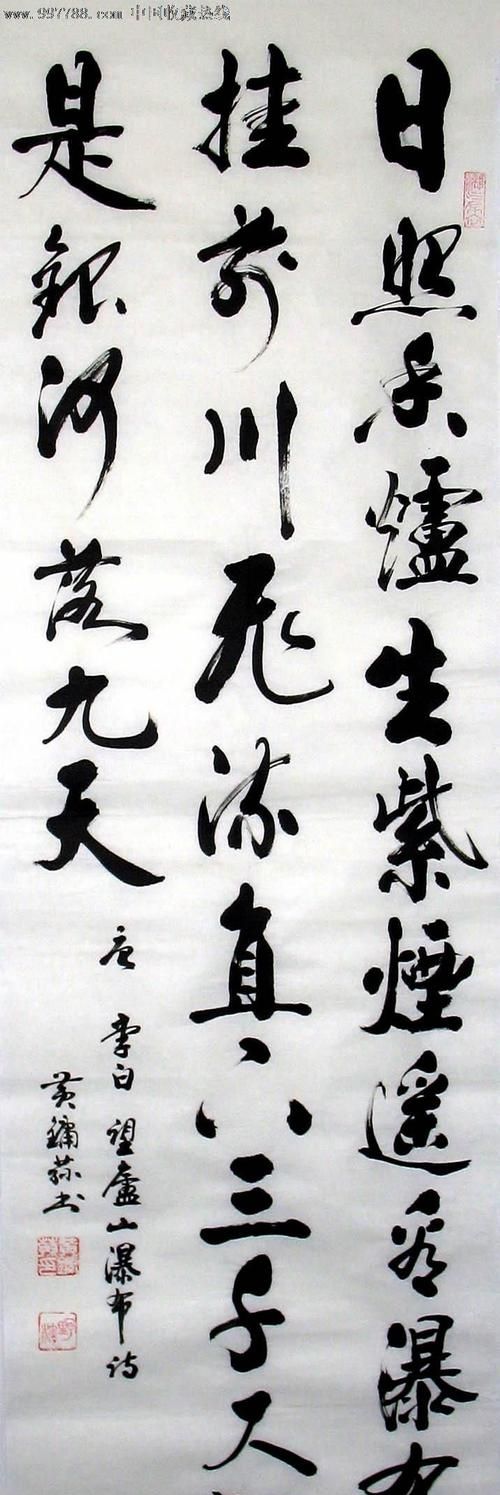 www.997788.com 中国收藏热线
日照香爐生紫煙遥看瀑布
挂前川飛流直下三千尺
是銀河落九天
唐 李白 望廬山瀑布诗
黄鏞书